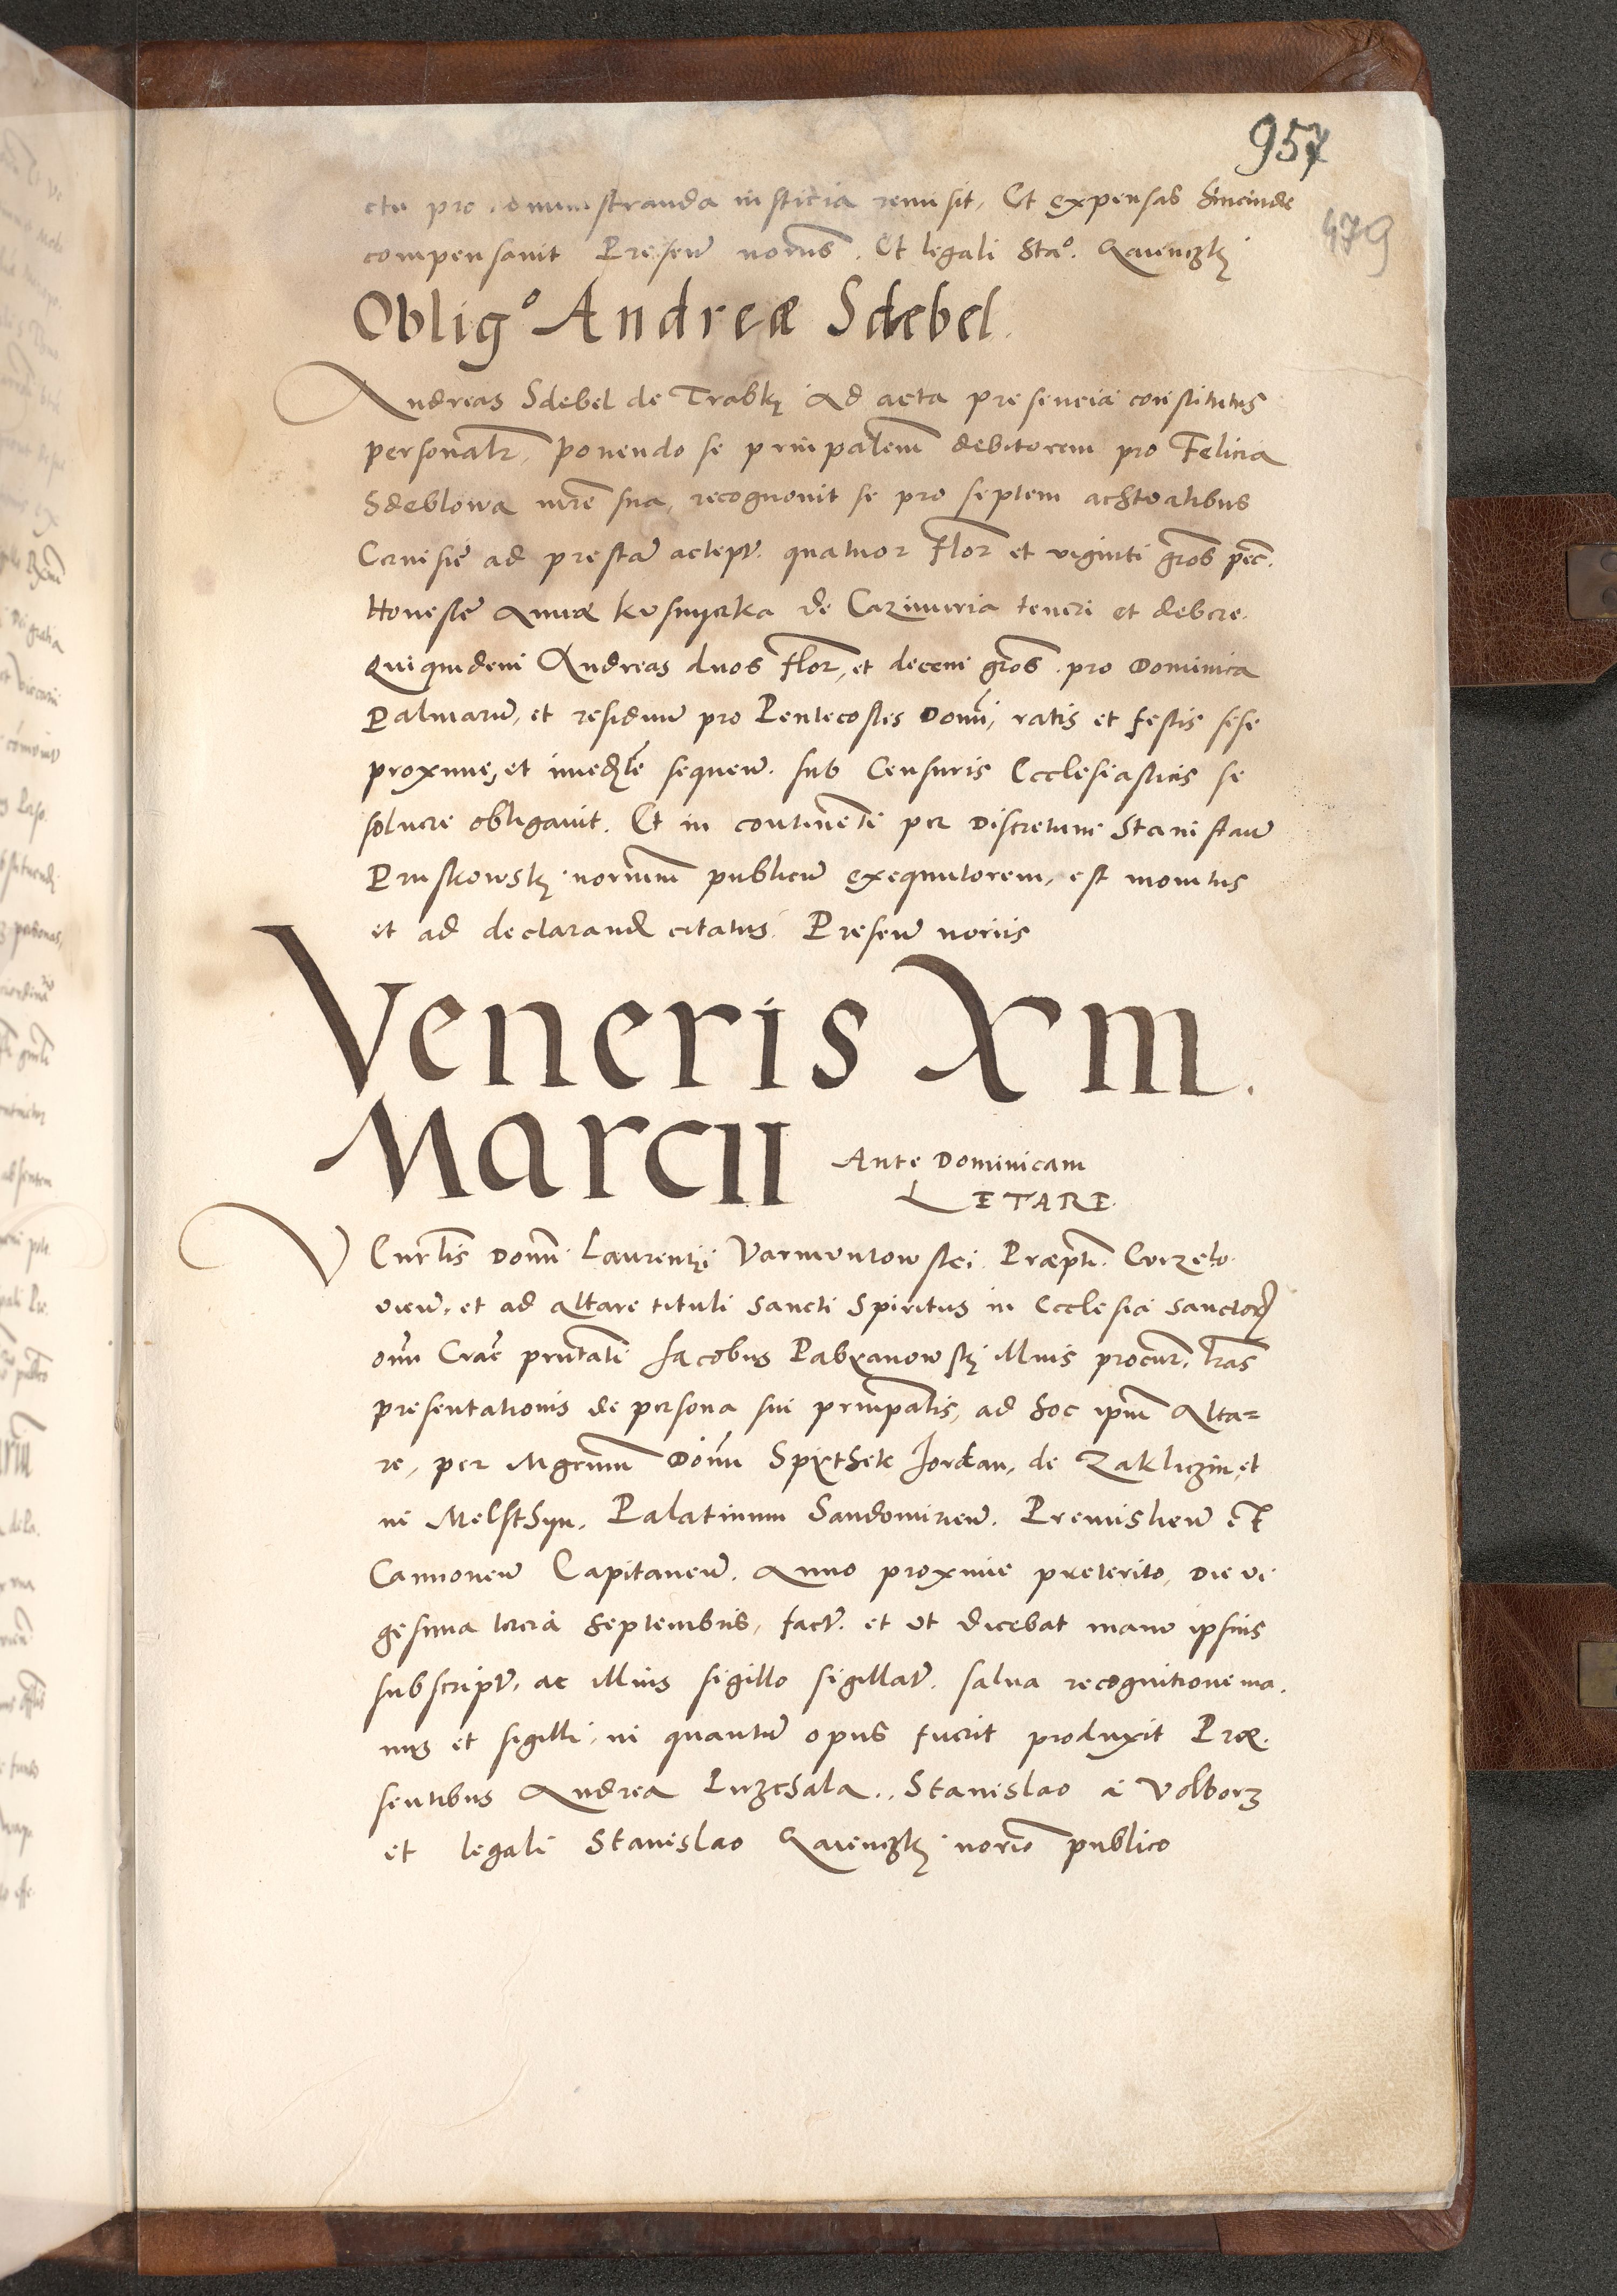 957
479
ctu pro administranda iusticia remisit, Et expensas hincinde
compensavit Presen̄ norijs. Et legali Sta°. Qaienczkj
Oblig° Andreæ Sdebel.
Andreas Sdebel de Trabkj Ad acta presencia constitutus
personalr̄, ponendo se prīnpalem̄ debitorem pro Felicia
Sdeblowa mr̄e sua, recognovit se pro septem achtvalibus
Cervisiē ad prestā acteptꝛ. quatuor flor̄ et viginti gros̄ pec̄.
Honestē Annæ kvsnyerka de Cazimiria teneri et debere.
Qui quidem Andreas duos flor̄, et decem gros̄. pro Dominica
Palmarū, et residuū pro Pentecostes Domī, ratis et festis sese
proxime, et imedᵗᵉ sequen̄. sub Censuris Ecclesiasticis se
solvere obligavit. Et in contineñti per Discretum Stanislaū
Pruskowskj noriūm publicū exequutorem, est monitus
et ad declarand̄ citatus. Presen̄ norijs
Veneris XIII.
Marcii Ante Dominicam
LETARE.
VCurtīs Domī Laurentij Varmuntowskei. Præpti. Curzelo
vien̄, et ad altare tituli Sancti Spiritus in Ecclesia Sanctorꝝ
om̄ Crac̄ prn̄tati Jacobus Pabyanowskj illius procurꝛ, lrās
presentationis de persona sui prīnpalis, ad hoc ipm̄ Alta=
re, per Mgn̄icum Dōm̄ Spythek Jordan, de Zakliczin, et
in Melsthyn, Palatinum Sandomirien̄. Premislien̄ et
Camionen̄ Capitaneū. Anno proxime preterito, Die vi
gesima tercia Septembris, factꝛ. et ut dicebat manu ipsius
subscriptꝛ, ac illius sigillo sigillatꝛ. salva recognitione ma.
nus et sigilli, in quantū opus fuerit produxit Præ.
sentibus Andrea Puzchala.. Stanislao a Volborz
et legali Stanislao Qaienczkj norīo publico